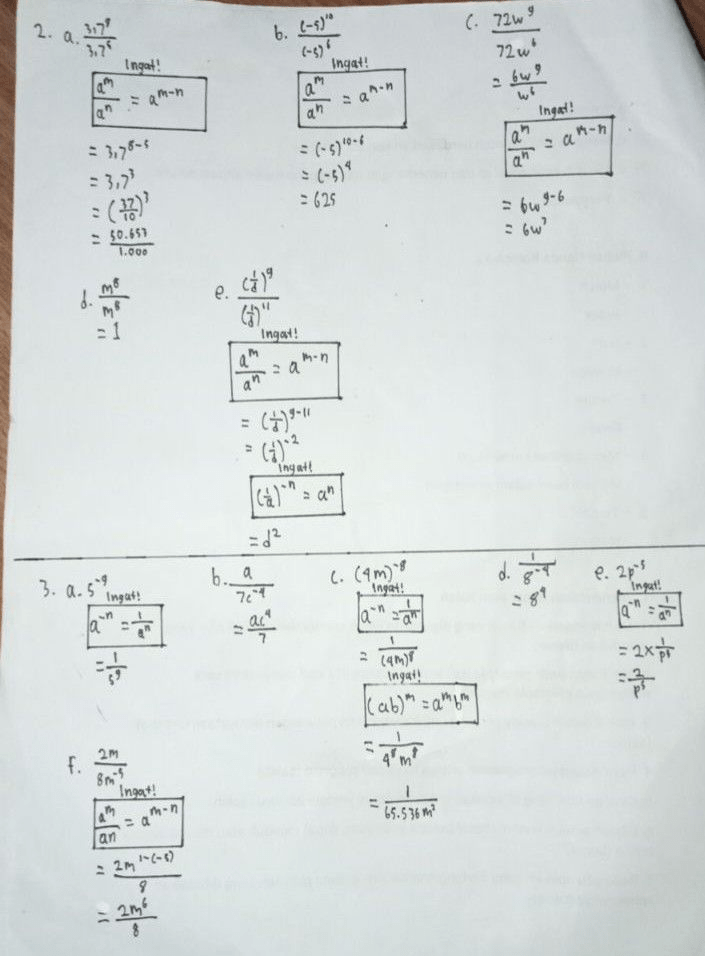 2. a. 3,7⁸/3,7⁵
Ingat!
aᵐ/aⁿ = aᵐ⁻ⁿ
= 3,7⁸⁻⁵
= 3,7³
= (37/10)³
= 50.653/1.000
b. (-5)¹⁰/(-5)⁶
Ingat!
aᵐ/aⁿ = aᵐ⁻ⁿ
= (-5)¹⁰⁻⁶
= (-5)⁴
= 625
c. 72w⁹/72w⁶
= 6w⁹/w⁶
Ingat!
aᵐ/aⁿ = aᵐ⁻ⁿ
= 6w⁹⁻⁶
= 6w³
d. m⁸/m⁸
= 1
e. (1/d)⁹/(1/d)¹¹
Ingat!
aᵐ/aⁿ = aᵐ⁻ⁿ
= (1/d)⁹⁻¹¹
= (1/d)⁻²
Ingat!
(1/a)⁻ⁿ = aⁿ
= d²
3. a. 5⁻⁹
Ingat!
a⁻ⁿ = 1/aⁿ
= 1/5⁹
b. a/7c⁻⁴
= ac⁴/7
c. (4m)⁻⁸
Ingat!
a⁻ⁿ = 1/aⁿ
= 1/(4m)⁸
Ingat!
(ab)ᵐ = aᵐbᵐ
= 1/4⁸m⁸
= 1/65.536m⁸
d. 1/8⁻⁴
= 8⁴
e. 2p⁻⁵
Ingat!
a⁻ⁿ = 1/aⁿ
= 2×1/p⁵
= 2/p⁵
f. 2m/8m⁻⁵
Ingat!
aᵐ/aⁿ = aᵐ⁻ⁿ
= 2m¹⁻⁽⁻⁵⁾/8
= 2m⁶/8